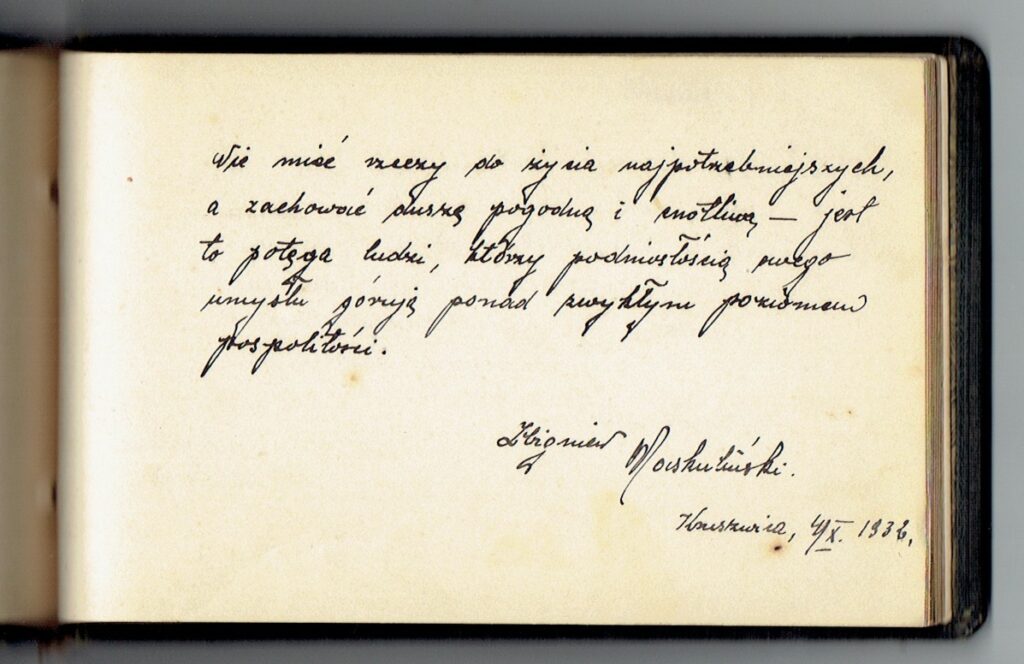 Nie mieć rzeczy do życia najpotrzebniejszych,
a zachować duszę pogodną i cnotliwą — jest
to potęga ludzi, którzy podniosłością swego
umysłu górują ponad zwykłym poziomem
pospolitości.
Zbigniew
Kruszwica, 4/X. 1932.